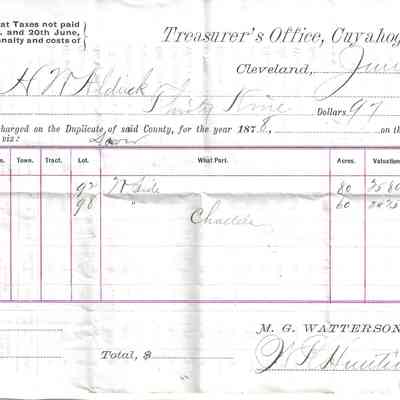 at Taxes not paid
, and 20th June,
enalty and costs of
Treasurer's Office, Cuyahog
Cleveland, June
H W Aldrick
Thirty Nine Dollars 97
charged on the Duplicate of said County, for the year 1878, on th
viz:
Town. Tract. Lot. What Part. Acres. Valuation
92 W Side 80
98 " 60
Chattels
M. G. WATTERSON
Total, $